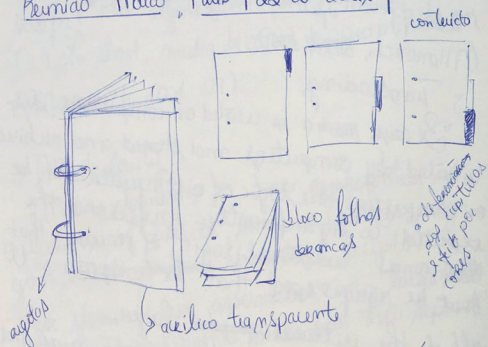 Reunião
conteúdo
bloco folhas
brancas
a diferenciação
dos capítulos
é feita por
cores
argolas
acrílico transparente